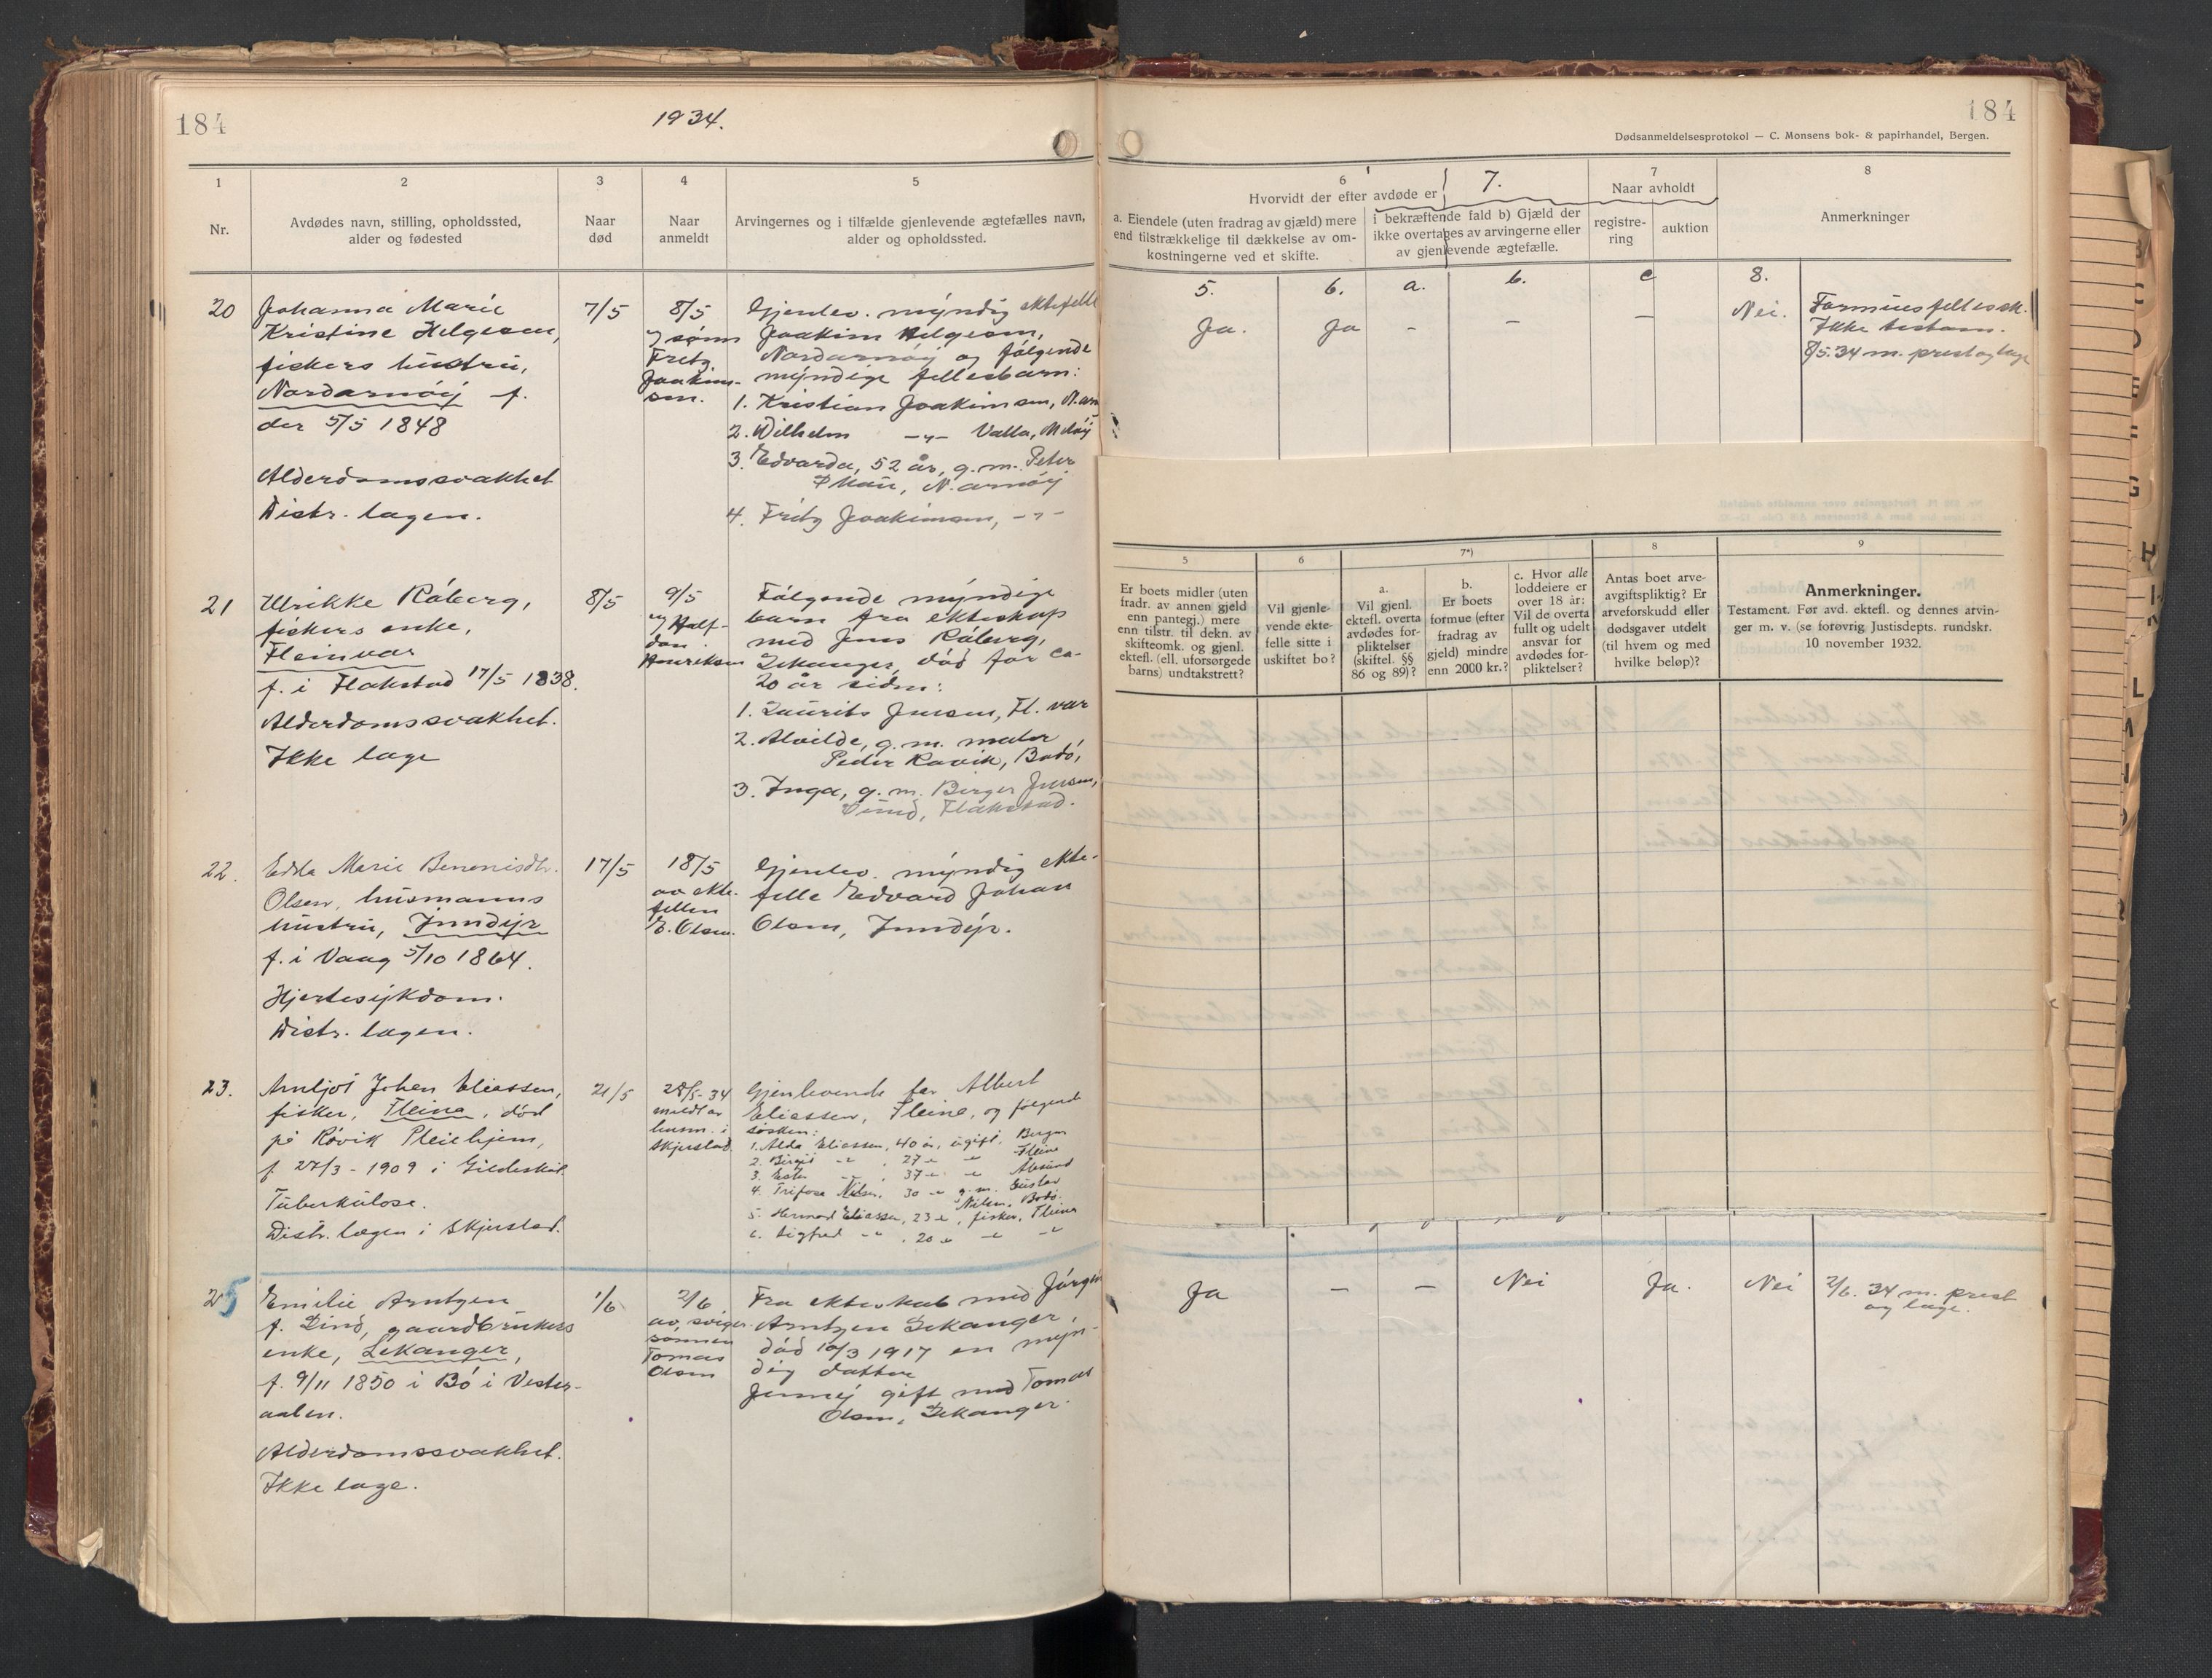 184
1934.
184
Dødsanmeldelsesprotokol — C. Monsens bok- & papirhandel, Bergen.
1
2
3
4
5
Nr.
Avdødes navn, stilling, opholdssted,
alder og fødested
Naar
død
Naar
anmeldt
Arvingernes og i tilfælde gjenlevende ægtefælles navn,
alder og opholdssted.
20
Johanna Marie
Kristine Helgesen,
fiskers hustru,
Nordarnøy f.
der 5/5 1848
Alderdomssvakhet
Distr. lægen.
7/5
8/5
sønn
Fritz
Joakim-
sen.
Gjenlev. myndig ektefelle
Joakim Helgesen,
Nordarnøy og følgende
myndige fellesbarn:
1. Kristian Joakimsen, N. arn
2. Wilhelm —"— Valla, Meløy
3. Edvarda, 52 år, g. m. Peter
N. arnøy
4. Fritz Joakimsen, —"—
21
Ulrikke Råberg,
fiskers enke,
Fleinvær
f. i Flakstad 17/5 1838.
Alderdomssvakhet.
Ikke læge
8/5
9/5
Half-
dan
Henriksen
Følgende myndige
barn fra ekteskap
med Jens Råberg,
Sekanger, død for ca-
20 år siden:
1. Laurits Jensen, Fl. vær
2. Alvilde, g. m. maler
Peder Ravik, Bodø,
3. Inga, g. m. Birger Jensen,
Sund, Flakstad.
22.
Edda Marie Benonisdtr.
Olsen, husmanns
hustru, Inndyr
f. i Vaag 5/10 1864.
Hjertesykdom.
Distr. lægen.
17/5
18/5
av ekte-
fellen
E. Olsen.
Gjenlev. myndig ekte-
felle Edvard Johan
Olsen, Inndyr.
23.
Arnljot Johan Eliassen,
fisker, Fleina, død
på Røvik Pleiehjem,
f. 27/3 - 1909 i Gildeskål.
Tuberkulose.
Distr. lægen i Skjerstad.
21/5
28/5-34
meldt av
lensm. i
Skjerstad.
Gjenlevende far Albert
Eliassen, Fleina, og følgende
søsken:
1. Alda Eliassen, 40 år, ugift, Bergen
2. Birgit —"—, 27 " " Fleina
3. Ester —"—, 37 " " Ålesund
4. Trifosa Nilsen, 30 " g. m. Gustav
Nilsen, Bodø.
5. Hermod Eliassen, 23 ", fisker, Fleina
6. Sigfred —"—, 20 " " "
25
Emilie Arntzen
f. Lind, gaardbrukers
enke, Sekanger,
f. 9/11 1850 i Bø i Vester-
aalen.
Alderdomssvakhet.
Ikke læge.
1/6
2/6.
av sviger-
sønnen
Tomas
Olsen
Fra ekteskab med Jørgen
Arntzen Sekanger,
død 10/3 1917 en myn-
dig datter
Jenny gift med Tomas
Olsen, Sekanger.
6
7.
7
8
Hvorvidt der efter avdøde er
Naar avholdt
a. Eiendele (uten fradrag av gjæld) mere
end tilstrækkelige til dækkelse av om-
kostningerne ved et skifte.
i bekræftende fald b) Gjæld der
ikke overtages av arvingerne eller
av gjenlevende ægtefælle.
registre-
ring
auktion
Anmerkninger
5.
6.
a.
b.
c
8.
Ja.
Ja
-
-
-
Nei.
Formuesfellessk.
Ikke testam.
8/5.34 m. prest og læge
5
6
7*)
8
9
Er boets midler (uten
fradr. av annen gjeld
enn pantegj.) mere
enn tilstr. til dekn. av
skifteomk. og gjenl.
ektefl. (ell. uforsørgede
barns) undtakstrett?
Vil gjenle-
vende ekte-
felle sitte i
uskiftet bo?
a.
Vil gjenl.
ektefl. overta
avdødes for-
pliktelser
(skiftel. §§
86 og 89)?
b.
Er boets
formue (efter
fradrag av
gjeld) mindre
enn 2000 kr.?
c. Hvor alle
loddeiere er
over 18 år:
Vil de overta
fullt og udelt
ansvar for
avdødes for-
pliktelser?
Antas boet arve-
avgiftspliktig? Er
arveforskudd eller
dødsgaver utdelt
(til hvem og med
hvilke beløp)?
Anmerkninger.
Testament. Før avd. ektefl. og dennes arvin-
ger m. v. (se forøvrig Justisdepts. rundskr.
10 november 1932.
Ja
-
-
Nei
Ja.
Nei
2/6. 34 m. prest
og læge.